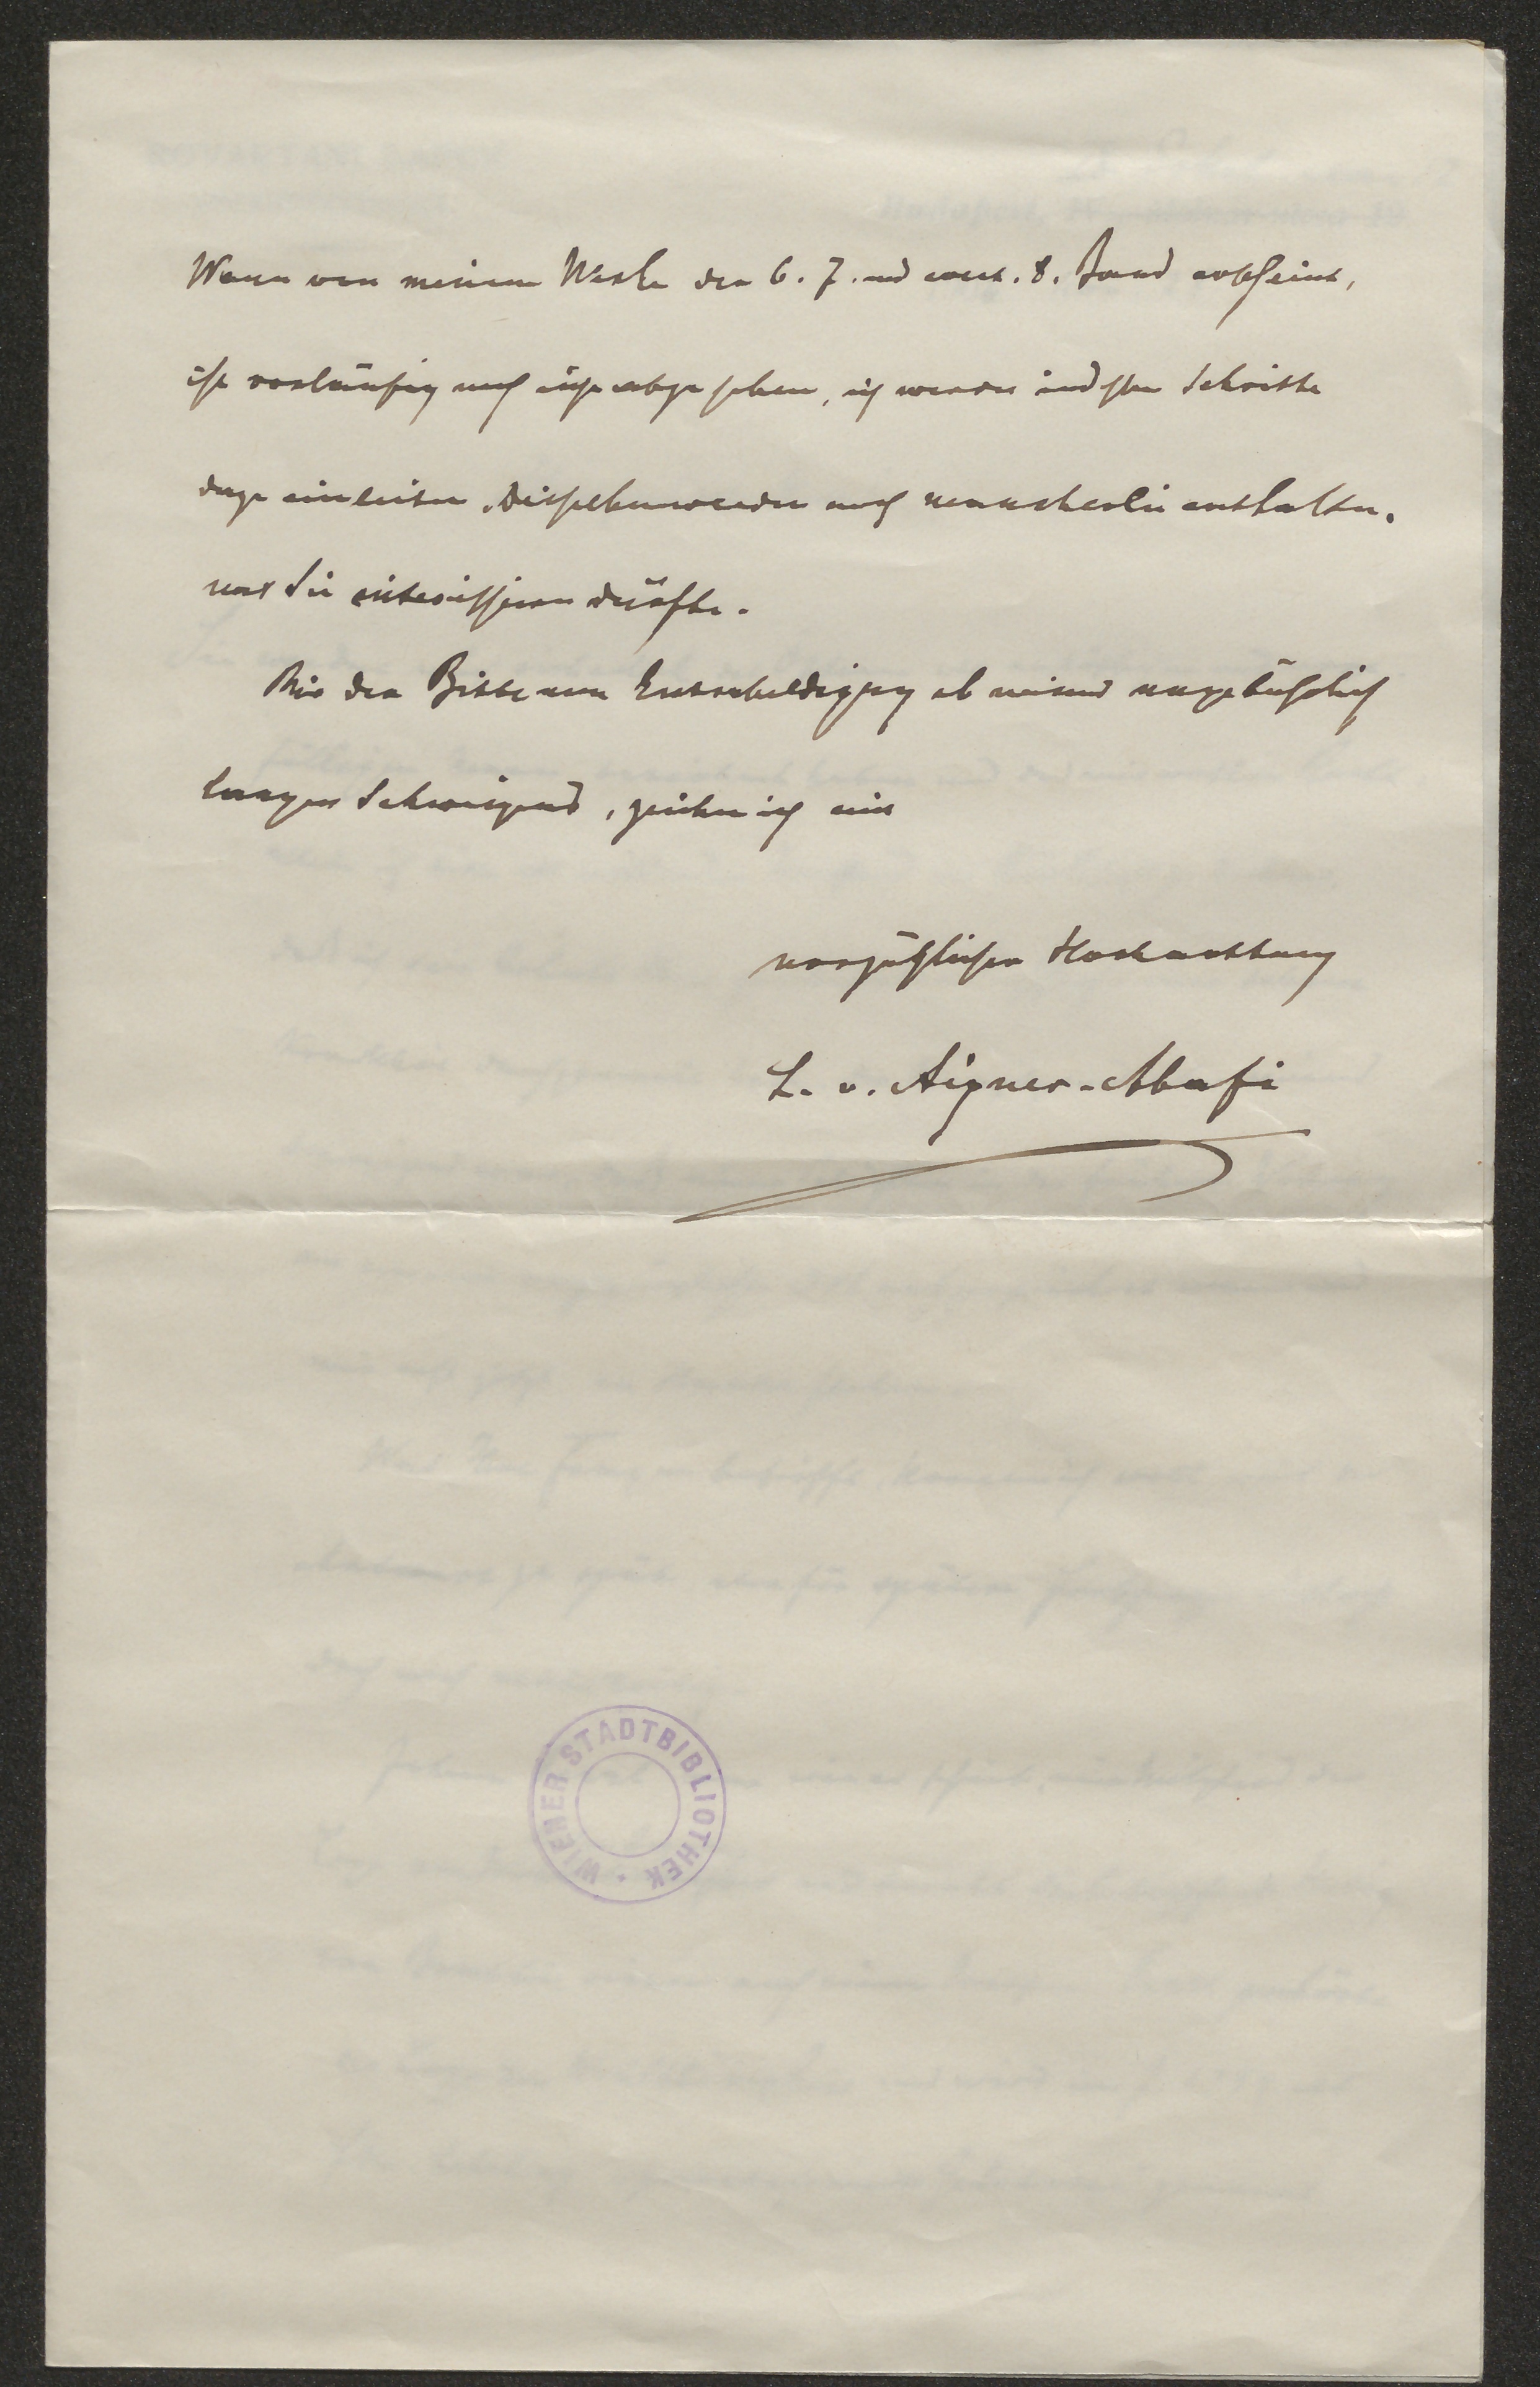 Wann von meinem Werke der 6. 7. und event. 8. Band erscheint,
ist vorläufig noch nicht abzusehen, ich werde indessen Schritte
dazu einleiten. Dieselben werden noch mancherlei enthalten,
was Sie interessiren dürfte.
Mit der Bitte um Entschuldigung ob meines ungebührlich
langen Schweigens, zeichne ich mit
vorzüglicher Hochachtung
L. v. Aigner-Abafi
WIENER STADTBIBLIOTHEK